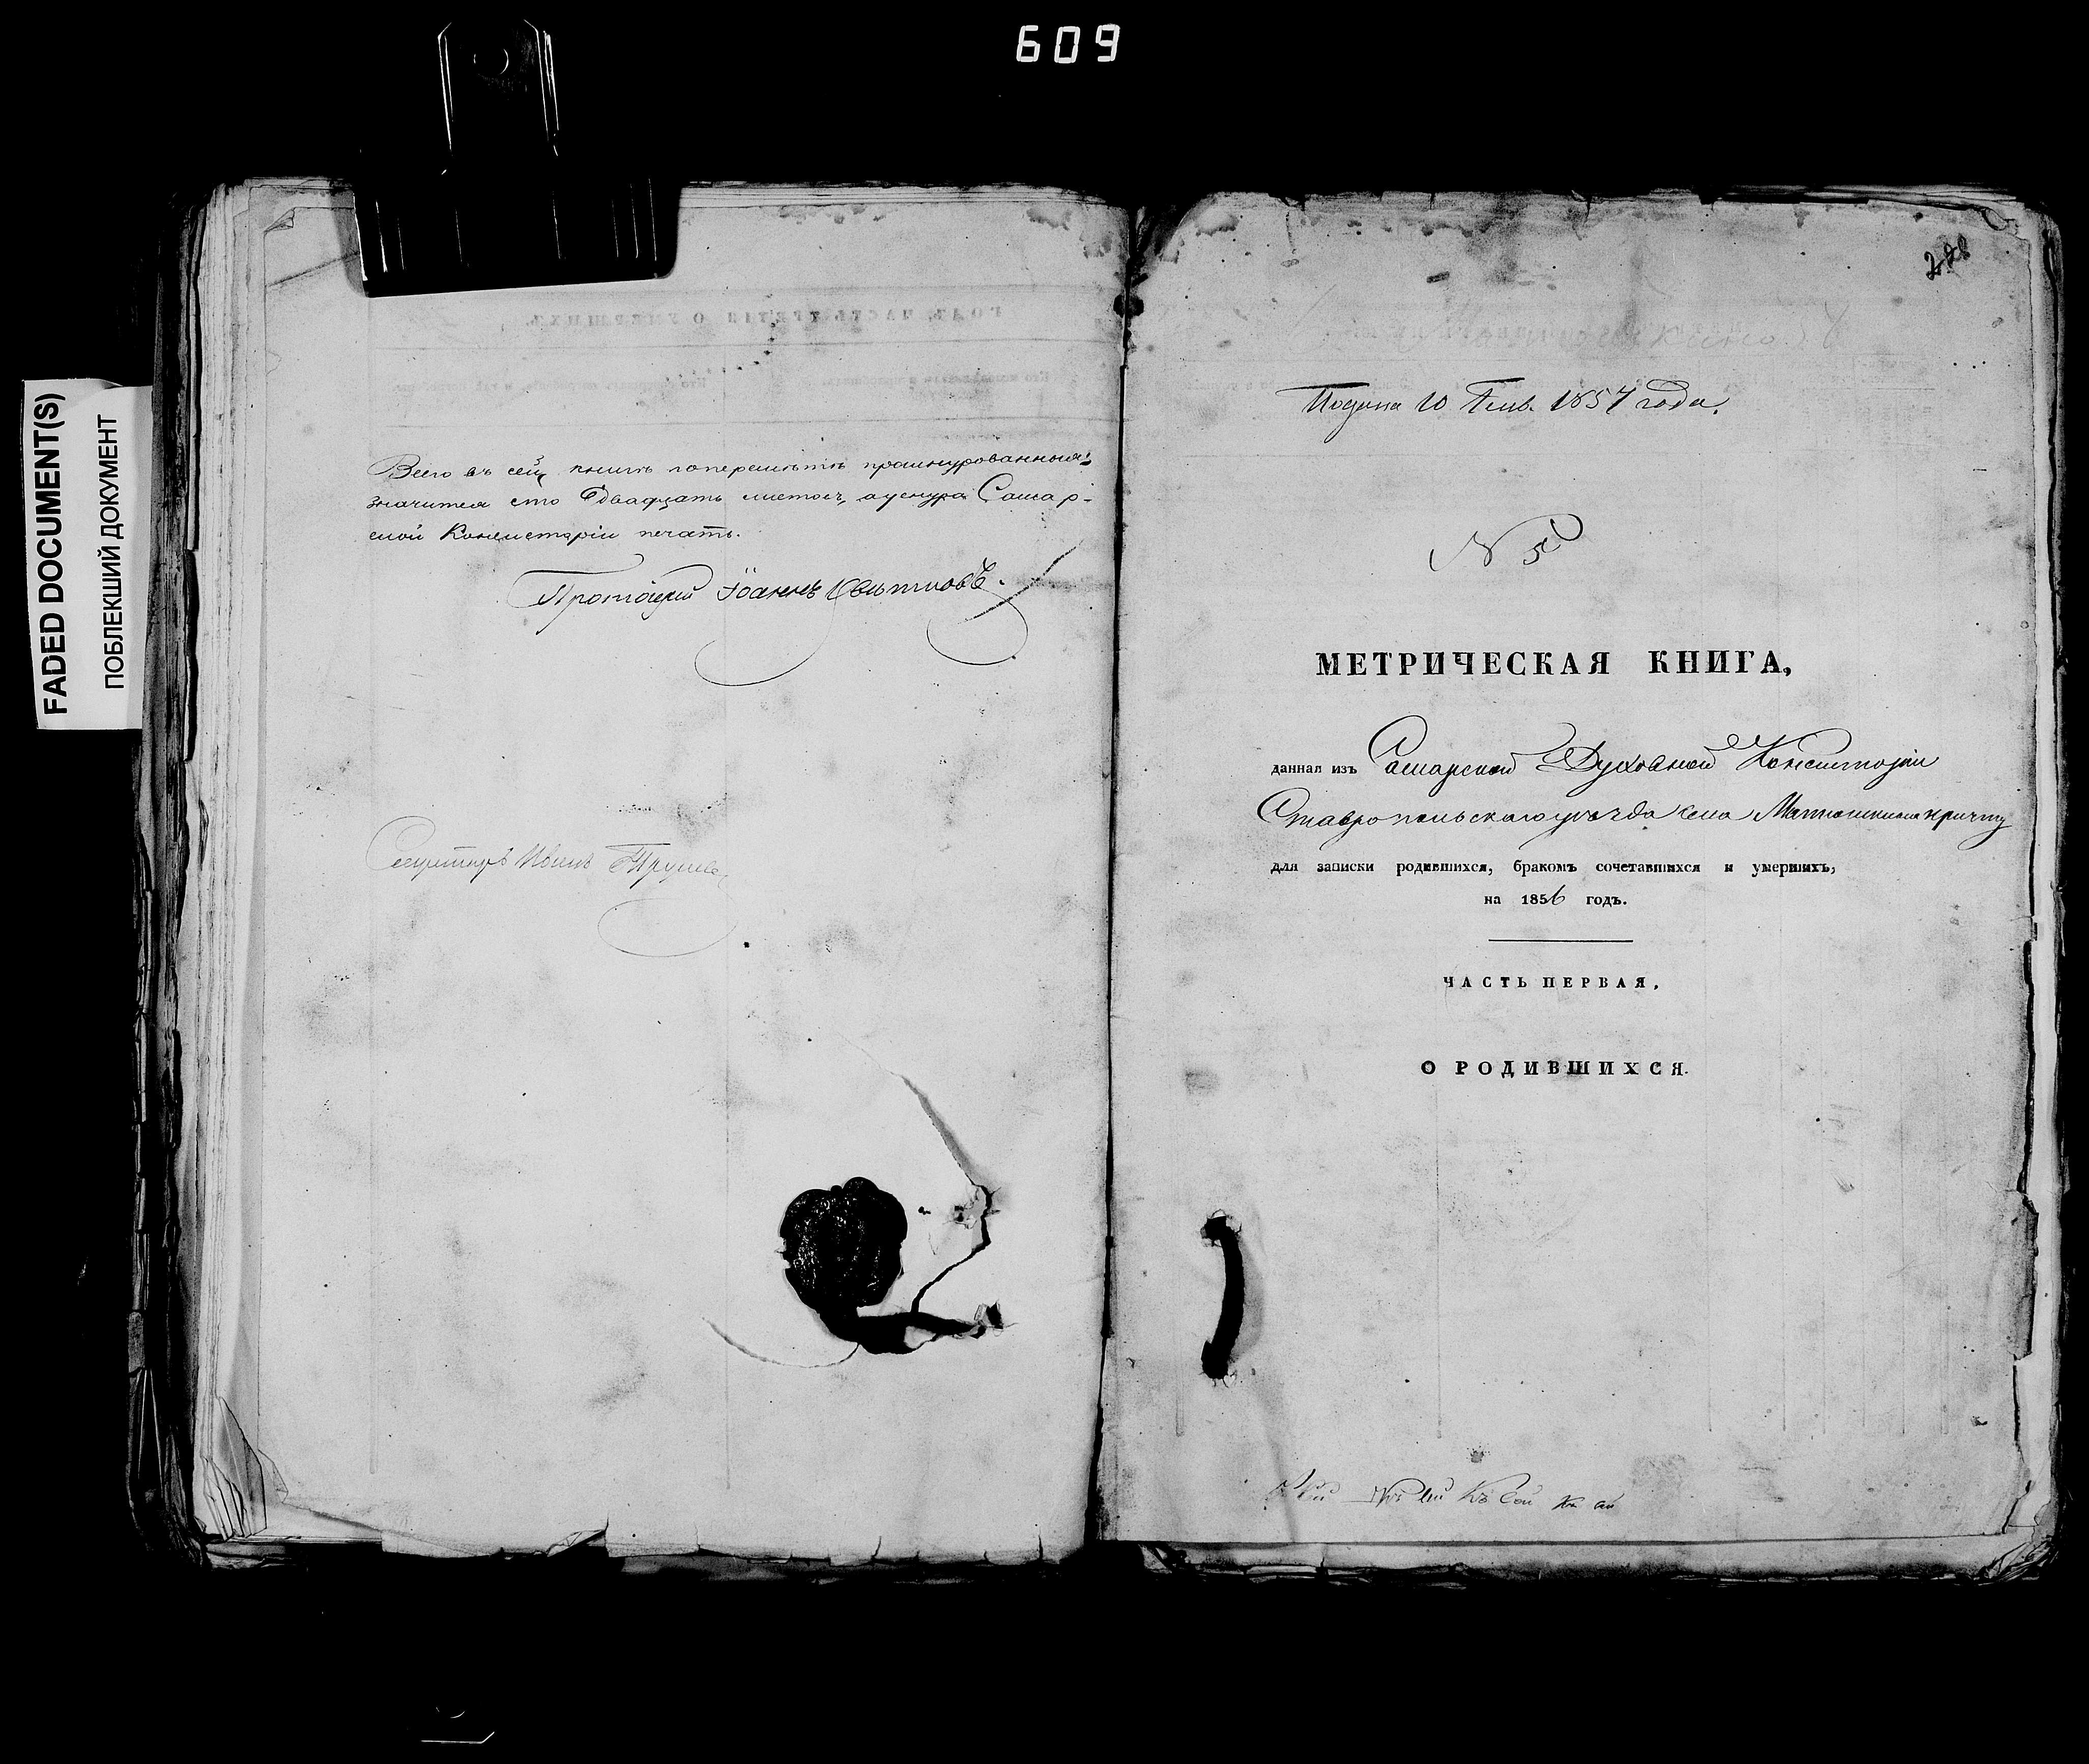 609
FADED DOCUMENT(S)
ПОБЛЕКШИЙ ДОКУМЕНТ
Всего въ сей книгѣ попереметкѣ прошнурованныхъ
значится сто двадцать листовъ, а у снура Самар-
ской Консисторіи печать.
Протоіерей Іоаннъ Свѣтловъ.
Секретарь Иванъ
228
Подана 10 Генв. 1857 года.
N 5
МЕТРИЧЕСКАЯ КНИГА,
данная изъ Самарской Духовной Консисторіи
Ставропольскаго уѣзда села Матюшкина причту
для записки родившихся, бракомъ сочетавшихся и умершихъ,
на 1856 годъ.
ЧАСТЬ ПЕРВАЯ.
О РОДИВШИХСЯ.